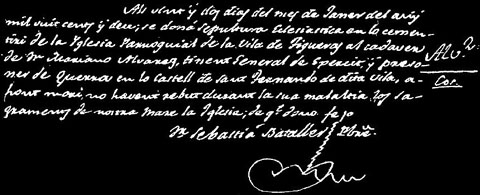 Als vint y dos dias del mes de Janer del any
mil vuit cens y deu; se doná sepultura Eclesiastica en lo cemen-
tiri de la Iglesia Parroquial de la Vila de Figueras al cadaver
de Dn. Mariano Alvarez, tinent General de Exercit, y preso-
ner de Guerra en lo Castell de Sant Fernando de dita Vila, a-
hont morí, no havent rebut durant la sua malaltia los sa-
graments de nostra Mare la Iglesia; de que dono fe jo
Dr. Sebastiá Bataller Pbre.
Alv.
Cos.